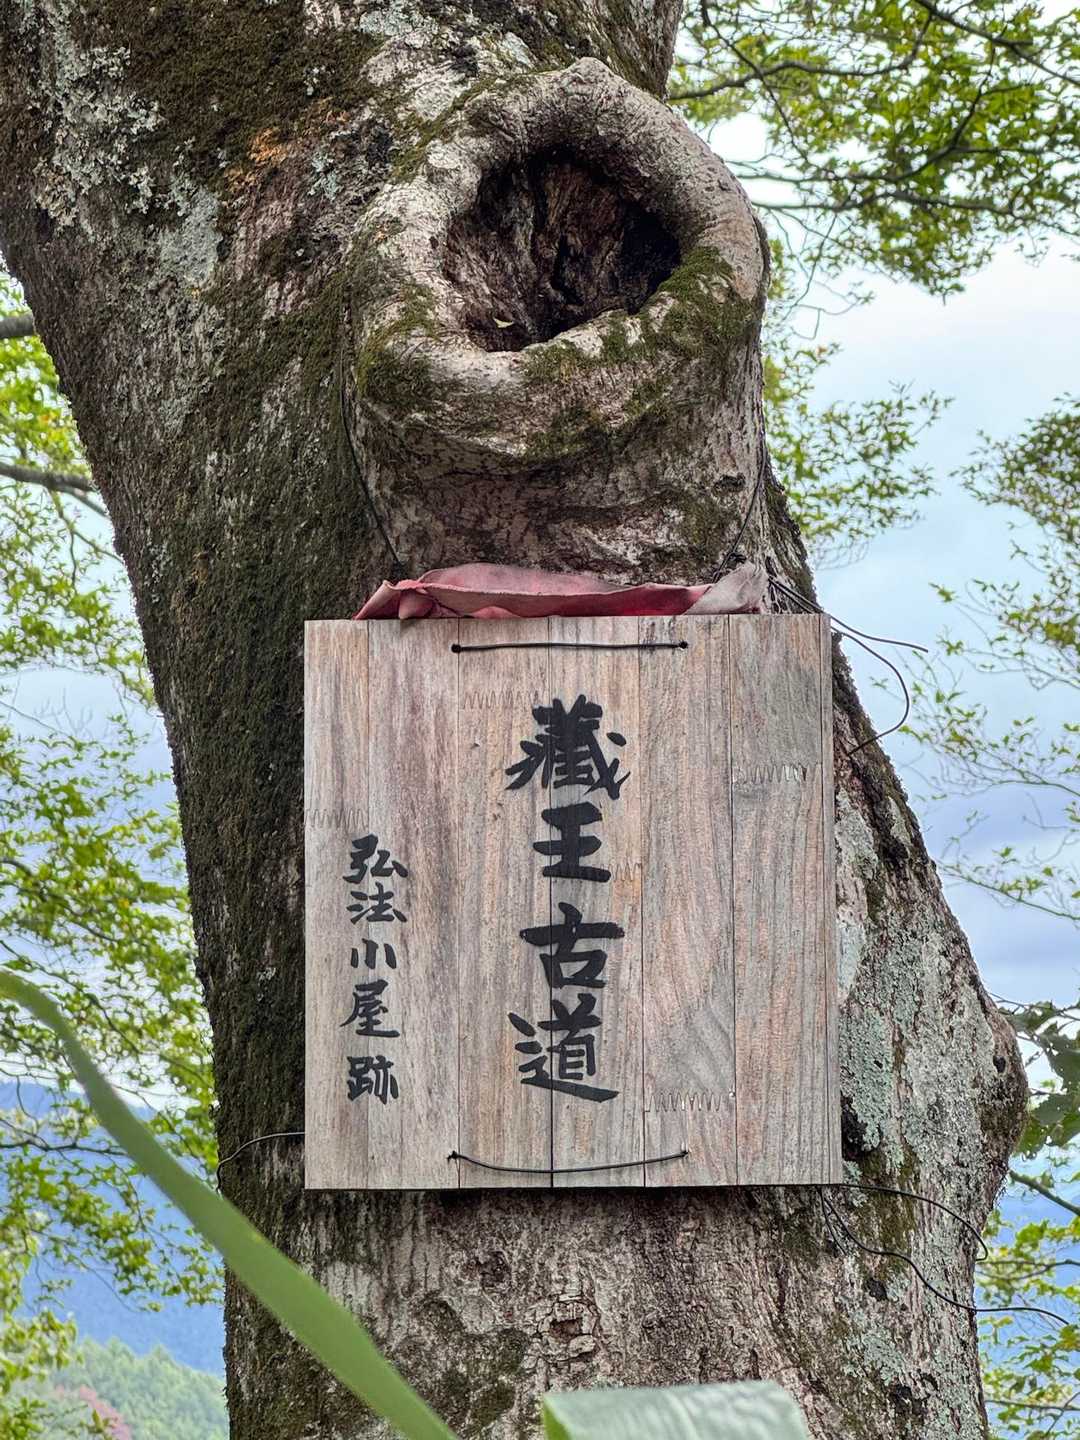 藏王古道
弘法小屋跡